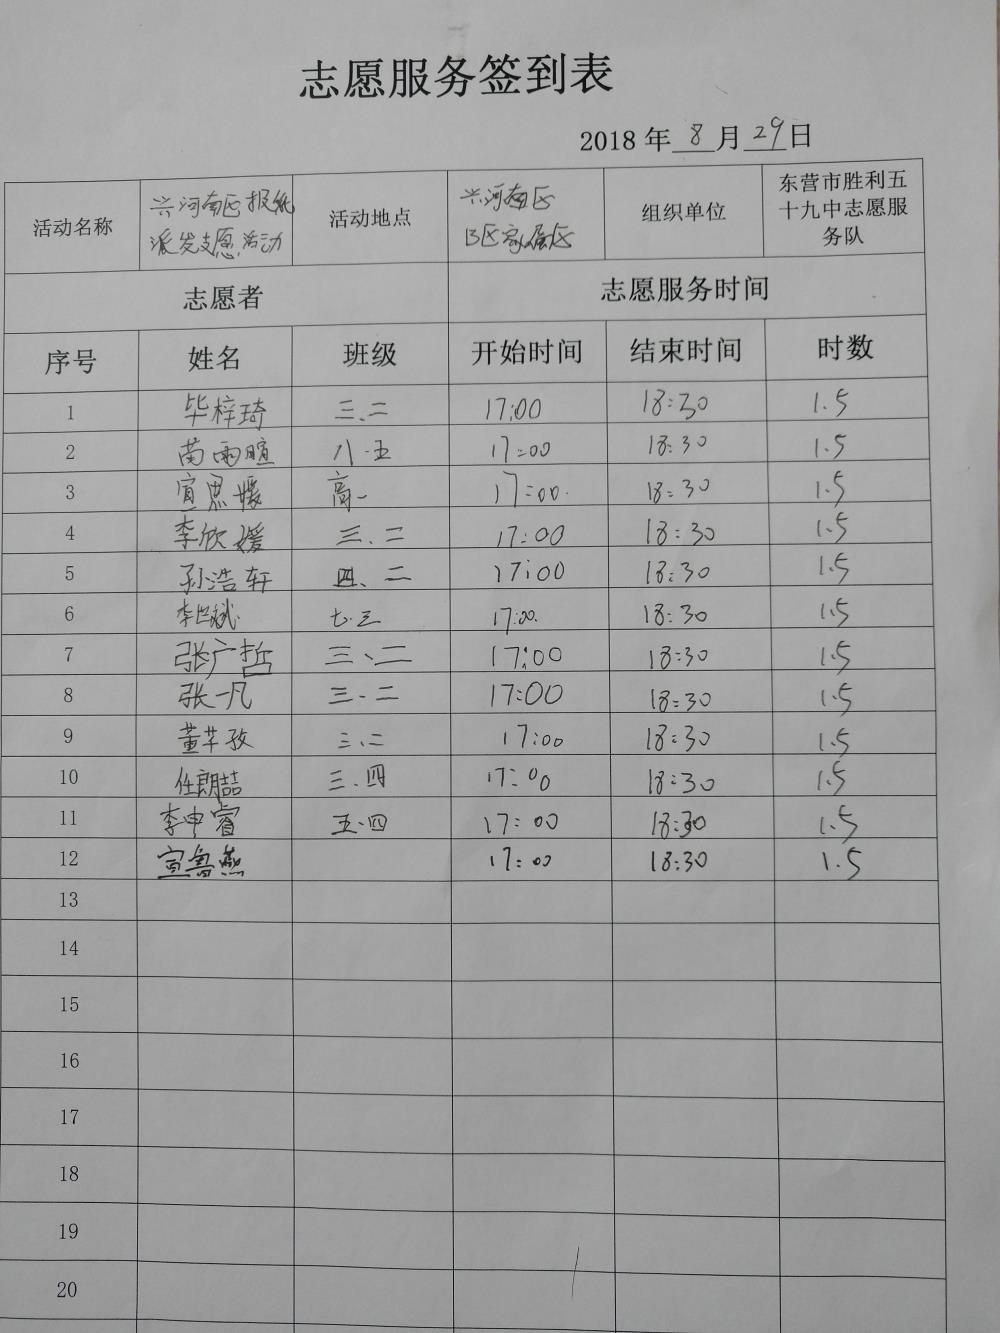 志愿服务签到表
2018 年 8 月 29 日
活动名称 兴河南区报纸派发志愿活动 活动地点 兴河南区B区家属区 组织单位 东营市胜利五十九中志愿服务队
志愿者 志愿服务时间
序号 姓名 班级 开始时间 结束时间 时数
1 毕梓琦 三.二 17:00 18:30 1.5
2 苗雨暄 八.五 17:00 18:30 1.5
3 宣思媛 高一 17:00. 18:30 1.5
4 李欣媛 三.二 17:00 18:30 1.5
5 孙浩轩 四、二 17:00 18:30 1.5
6 李 斌 七.三 17:00. 18:30 1.5
7 张广哲 三、二 17:00 18:30 1.5
8 张一凡 三.二 17:00 18:30 1.5
9 董芊孜 三.二 17:00 18:30 1.5
10 任朗喆 三.四 17:00 18:30 1.5
11 李申睿 五.四 17:00 18:30 1.5
12 宣鲁燕 17:00 18:30 1.5
13
14
15
16
17
18
19
20